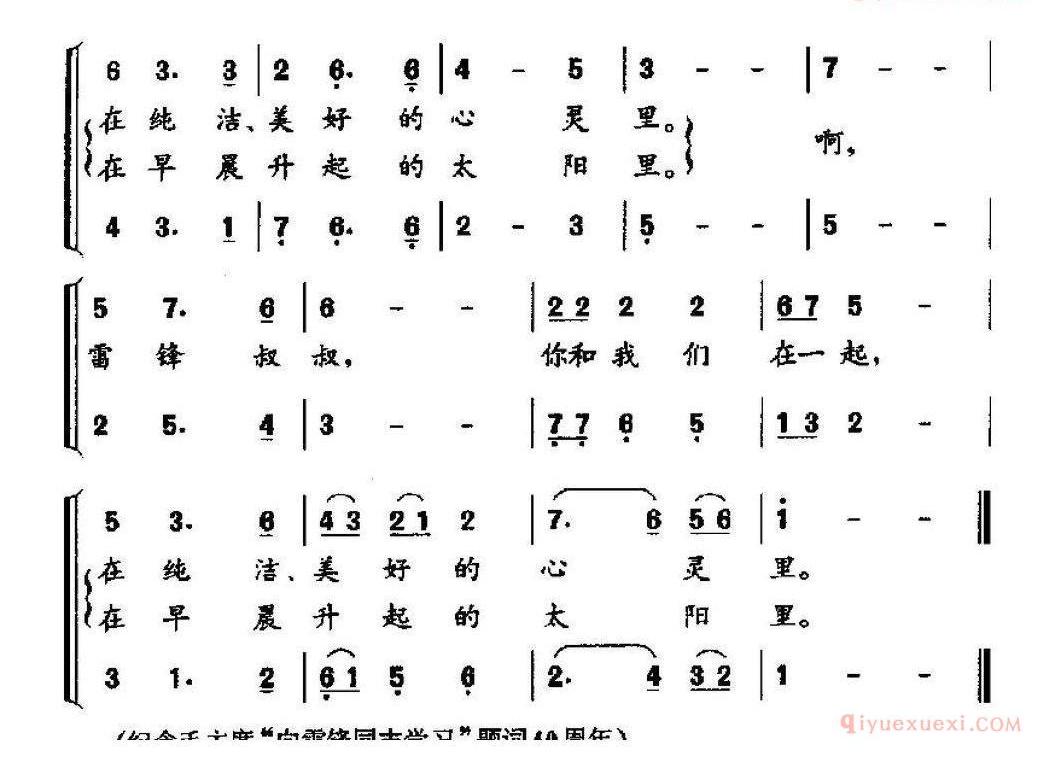 6 3. 3 | 2 6. 6 | 4 - 5 | 3 - - | 7 - - |
在纯洁、美好的心灵里。
啊，
在早晨升起的太阳里。
4 3. 1 | 7 6. 6 | 2 - 3 | 5 - - | 5 - - |
5 7. 6 | 6 - - | 2 2 2 2 | 6 7 5 - |
雷锋叔叔，你和我们在一起，
2 5. 4 | 3 - - | 7 7 6 5 | 1 3 2 - |
5 3. 6 | 4 3 2 1 2 | 7. 6 5 6 | 1 - - ‖
在纯洁、美好的心灵里。
在早晨升起的太阳里。
3 1. 2 | 6 1 5 6 | 2. 4 3 2 | 1 - - ‖
qiyuexuexi.com